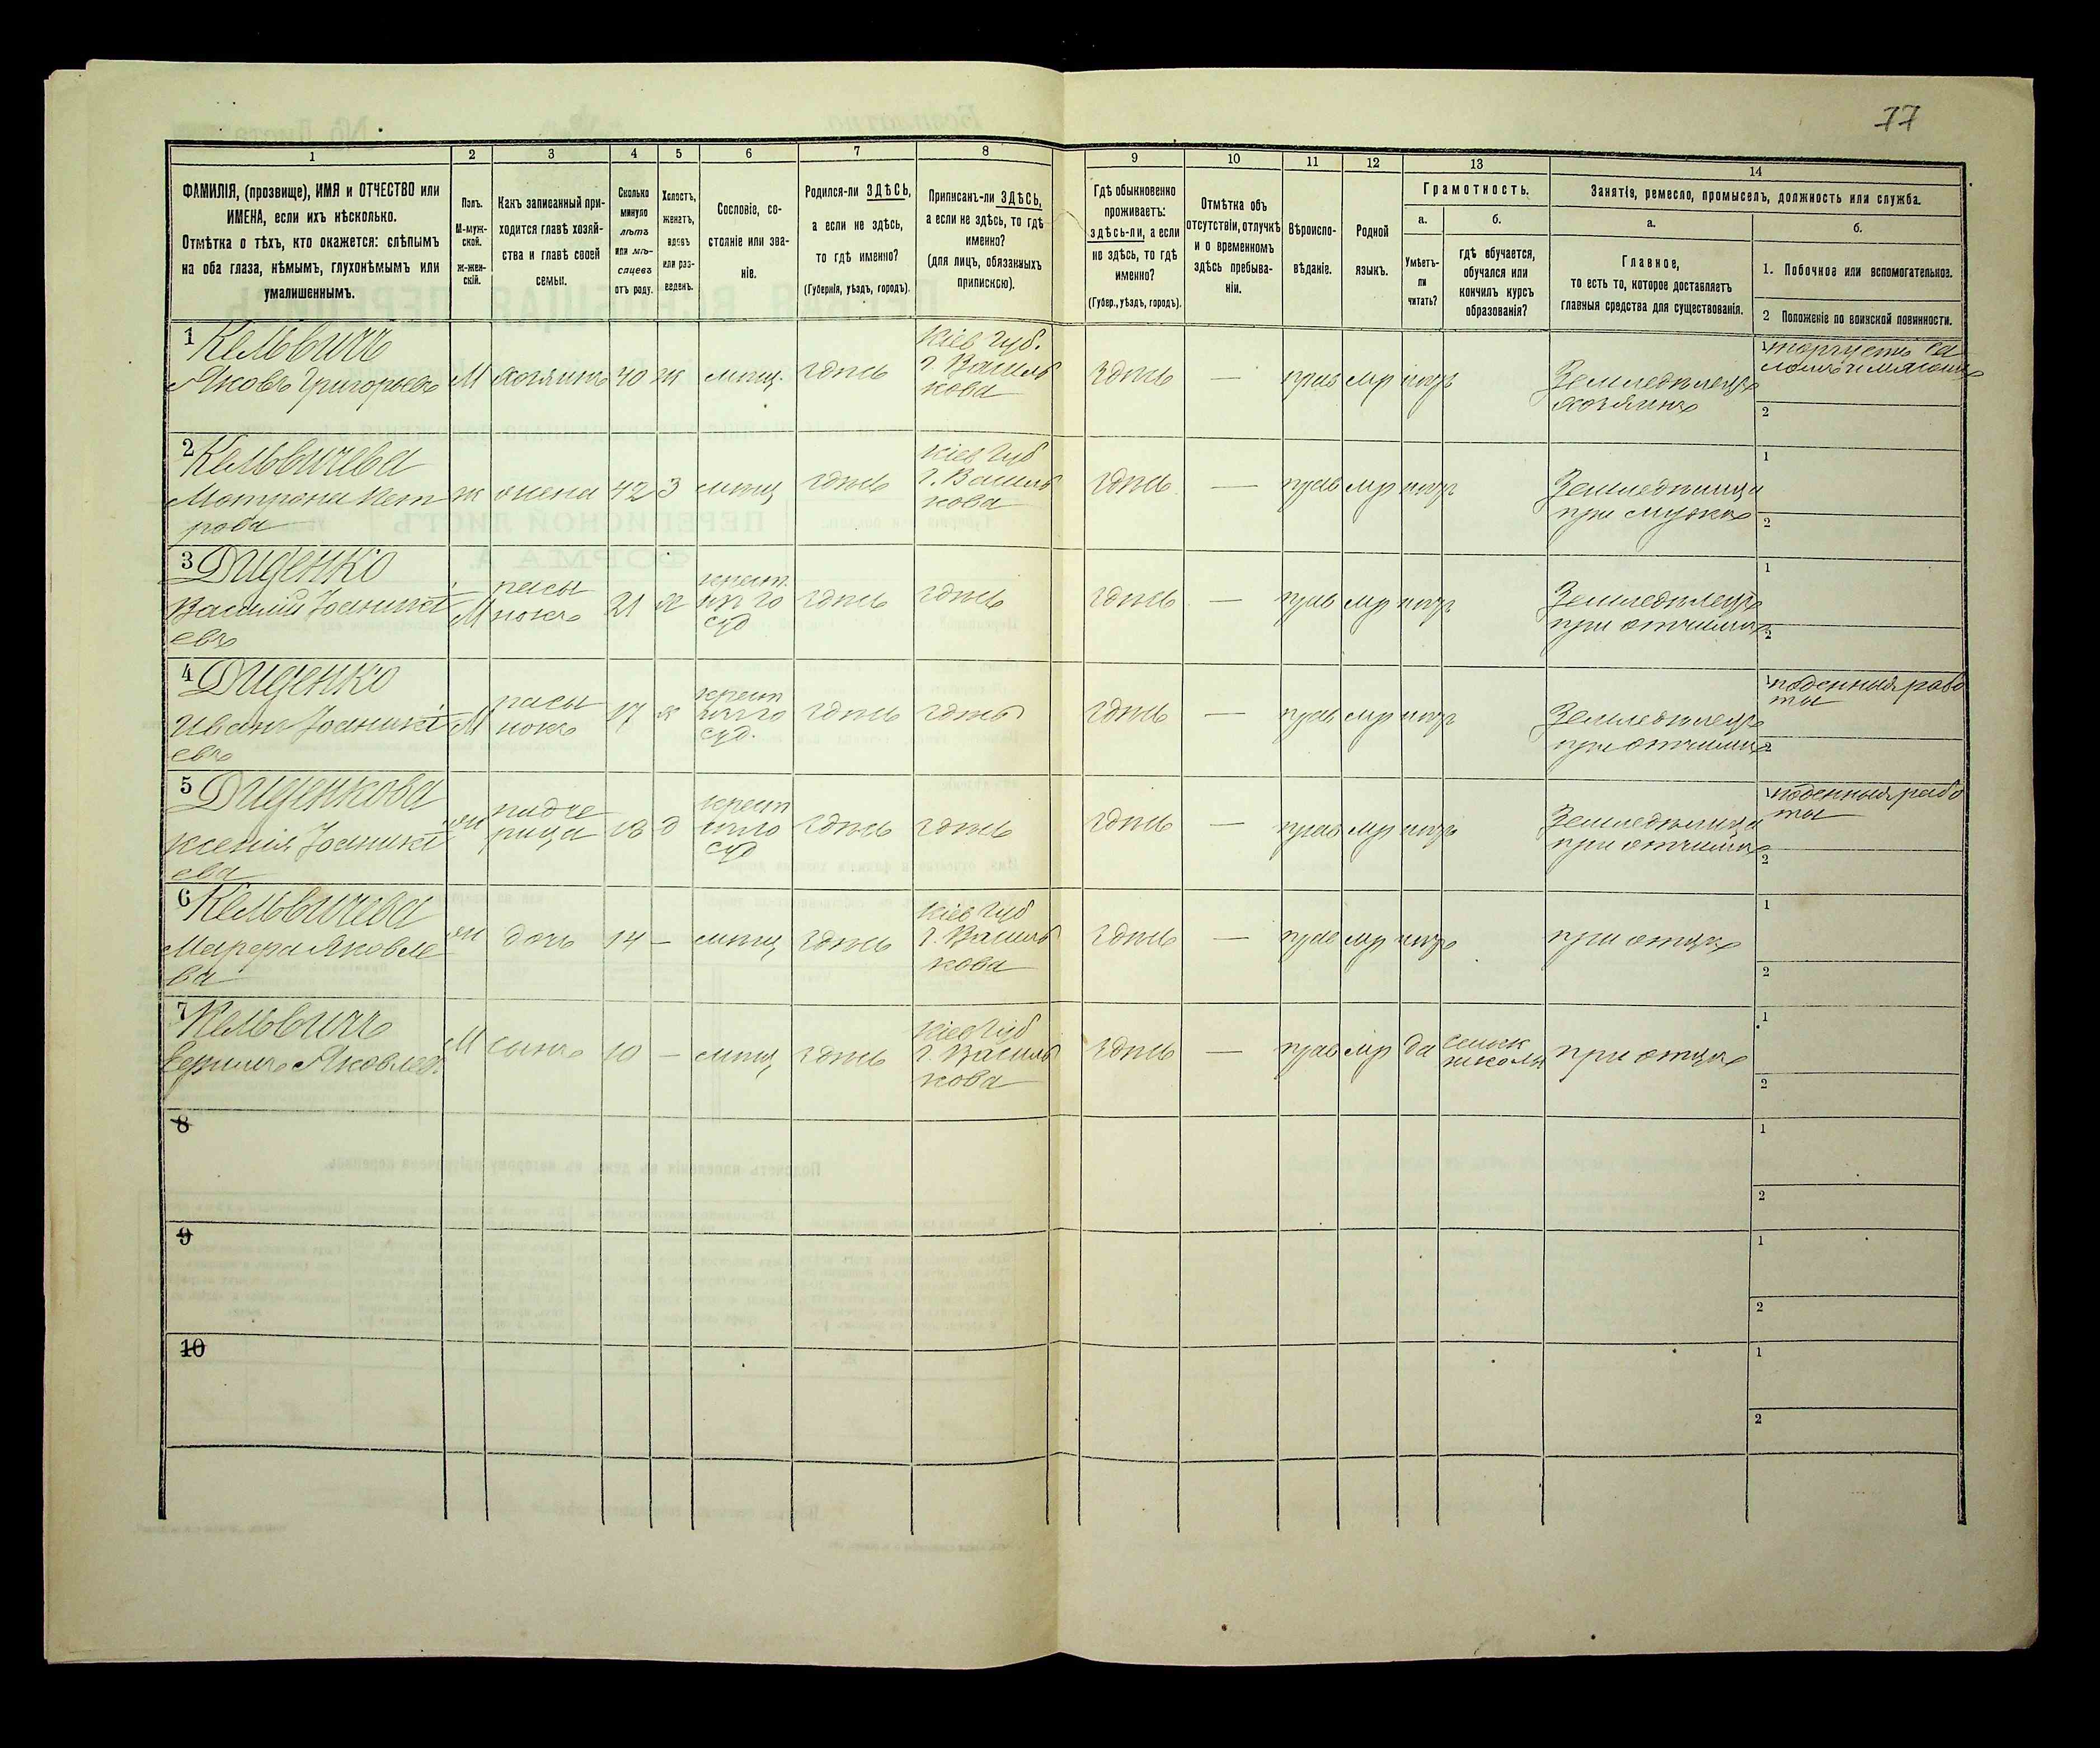 77
1 2 3 4 5 6 7 8 9 10 11 12 13 14
ФАМИЛІЯ, (прозвище), ИМЯ и ОТЧЕСТВО или
ИМЕНА, если ихъ нѣсколько.
Отмѣтка о тѣхъ, кто окажется: слѣпымъ
на оба глаза, нѣмымъ, глухонѣмымъ или
умалишеннымъ.
Полъ.
М-муж-
ской.
Ж-жен-
скій.
Какъ записанный при-
ходится главѣ хозяй-
ства и главѣ своей
семьи.
Сколько
минуло
лѣтъ
или мѣ-
сяцевъ
отъ роду.
Холостъ,
женатъ,
вдовъ
или раз-
веденъ.
Сословіе, со-
стояніе или зва-
ніе.
Родился-ли ЗДѢСЬ,
а если не здѣсь,
то гдѣ именно?
(Губернія, уѣздъ, городъ).
Приписанъ-ли ЗДѢСЬ,
а если не здѣсь, то гдѣ
именно?
(для лицъ, обязанныхъ
припискою).
Гдѣ обыкновенно
проживаетъ:
здѣсь-ли, а если
не здѣсь, то гдѣ
именно?
(Губер., уѣздъ, городъ).
Отмѣтка объ
отсутствіи, отлучкѣ
и о временномъ
здѣсь пребыва-
ніи.
Вѣроиспо-
вѣданіе.
Родной
языкъ.
Грамотность.
а.
Умѣетъ-
ли
читать?
б.
гдѣ обучается,
обучался или
кончилъ курсъ
образованія?
Занятія, ремесло, промыселъ, должность или служба.
а.
Главное,
то есть то, которое доставляетъ
главныя средства для существованія.
б.
1. Побочное или вспомогательное.
2 Положеніе по воинской повинности.
1 Кельвичъ
Яковъ Григорьевъ М хозяинъ 40 ж мѣщ. здѣсь
Кіев Губ.
г. Василь
кова
здѣсь — прав мр нѣтъ
Земледѣлецъ
хозяинъ
1
2
2 Кельвичева
Мотрона Пет
рова
ж жена 42 З мѣщ здѣсь
Кіев Губ
г. Василь
кова
здѣсь — прав мр нѣтъ
Земледѣлица
при мужѣ
1
2
3 Диденко
Василій Іоаникі
евъ
М пасы
нокъ 21 х
крест.
изъ го
суд
здѣсь здѣсь здѣсь — прав мр нѣтъ
Земледѣлецъ
при отчимѣ
1
2
4 Диденко
Иванъ Іоаникі
евъ
М пасы
нокъ 17 х
крест
изъ го
суд.
здѣсь здѣсь здѣсь — прав мр нѣтъ
Земледѣлецъ
при отчимѣ
1 поденныя рабо
ты
2
5 Диденкова
Ксенія Іоаникі
ева
ж падче
рица 18 д
крест
изъ го
суд
здѣсь здѣсь здѣсь — прав мр нѣтъ
Земледѣлица
при отчимѣ
1 поденныя рабо
ты
2
6 Кельвичева
Марфа Яковле
ва
ж дочь 14 — мѣщ здѣсь
Кіев Губ
г. Василь
кова
здѣсь — прав мр нѣтъ
при отцѣ
1
2
7 Кельвичъ
Яковлев
М сынъ 10 — мѣщ здѣсь
Кіев Губ
г. Василь
кова
здѣсь — прав мр да
сельск
школы
при отцѣ
1
2
8
1
2
9
1
2
10
1
2